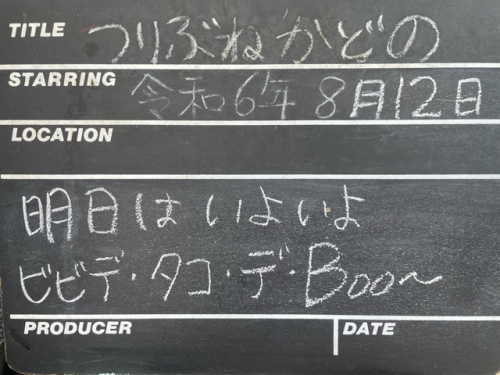 TITLE つりぶねかどの
STARRING 令和6年 8月12日
LOCATION
明日はいよいよ
ビビデ・タコ・デ・Boo〜
PRODUCER DATE